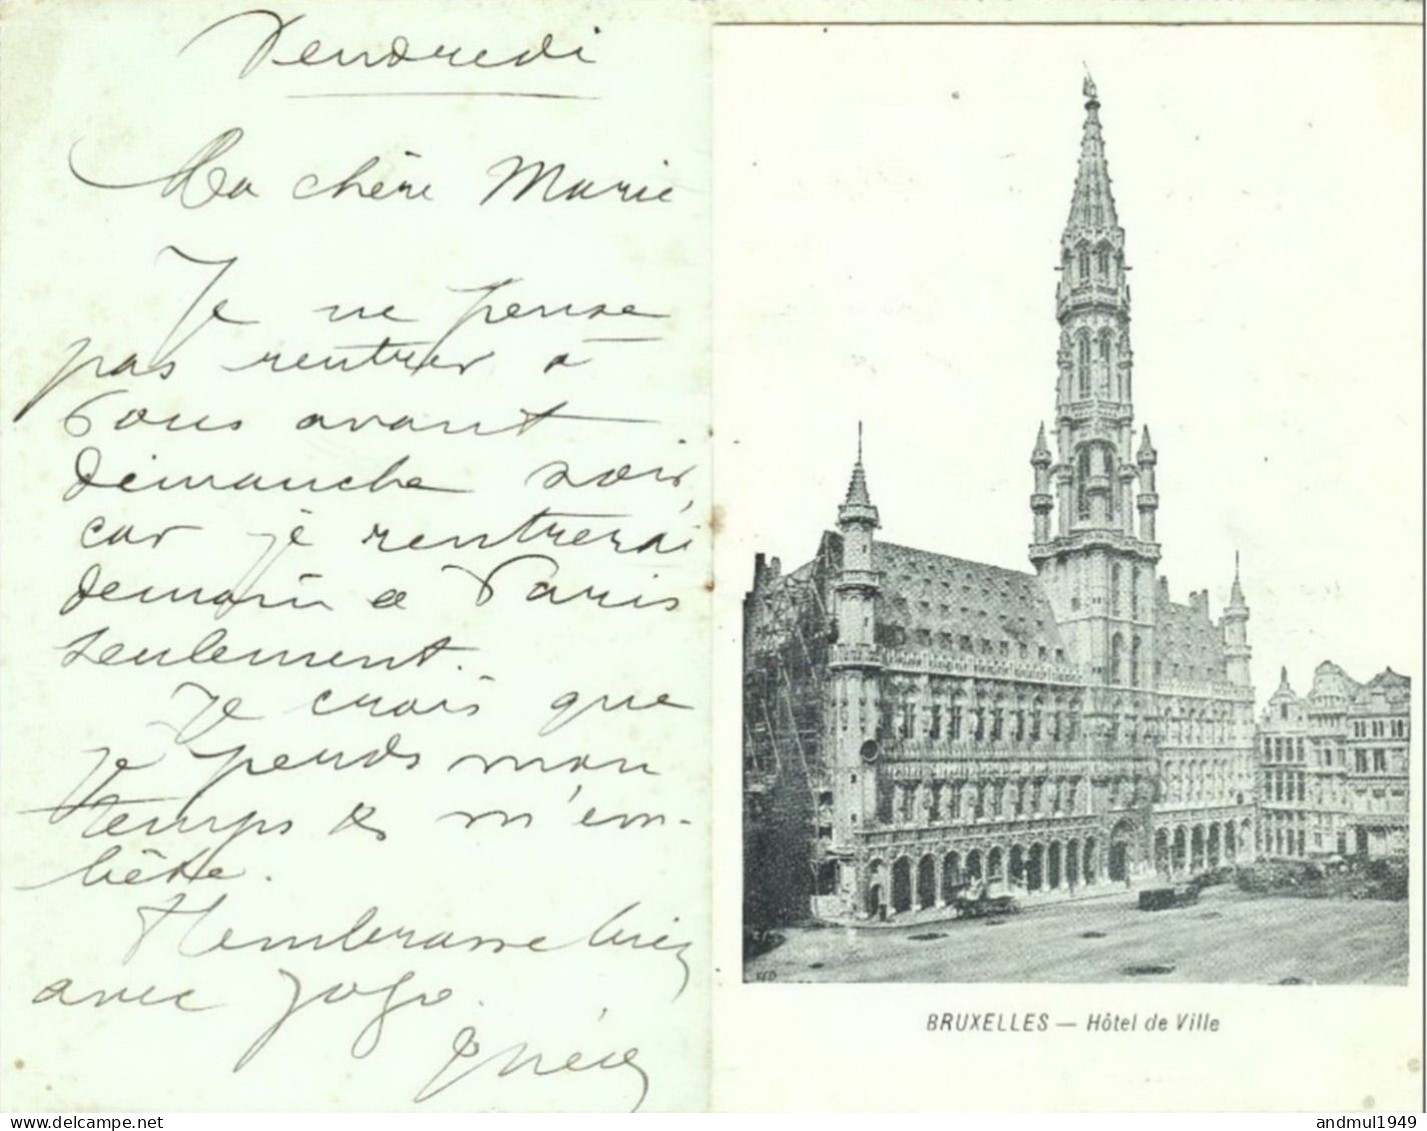 Vendredi
Ma chère Marie
Je ne pense
pas rentrer à
avant
dimanche soir,
car je rentrerai
demain à Paris
seulement.
Je crois que
je perds mon
temps & m'em-
bête.
T'embrasse bien
avec
BRUXELLES — Hôtel de Ville
andmul1949